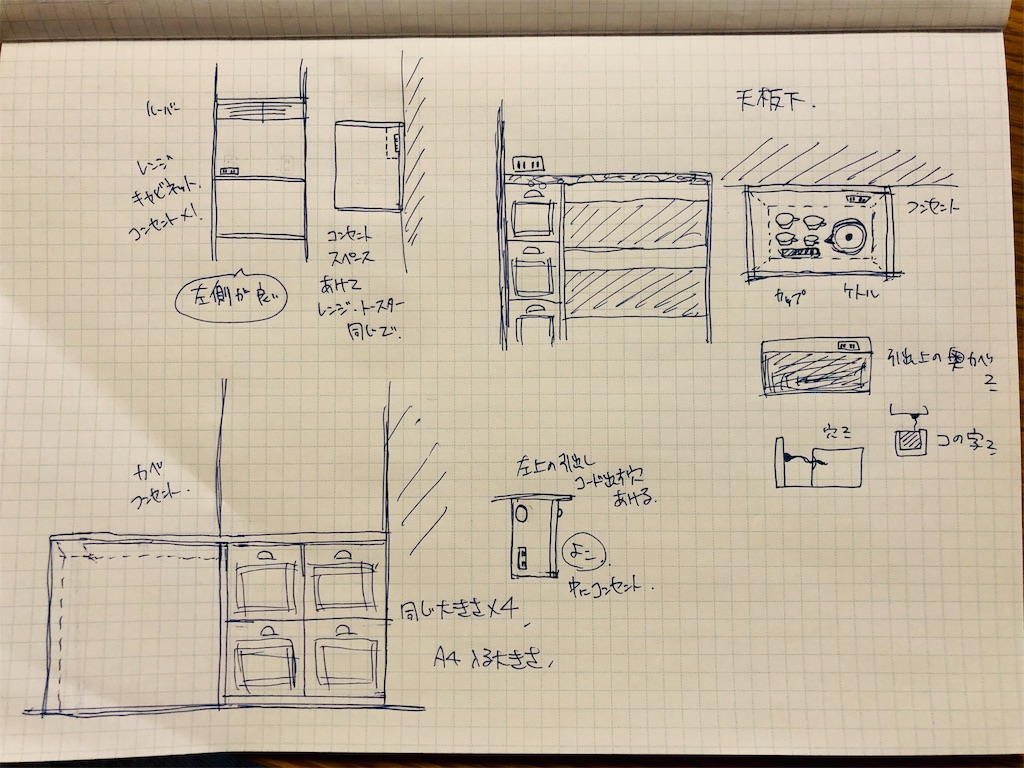 ルーバー
レンジ
キャビネット.
コンセント×!
左側が良い
コンセント
スペース
あけて
レンジ・トースター
同じで.
天板下.
コンセント
カップ
ケトル
引出上の奥カベ
ニ
穴ニ
コの字ニ
カベ
コンセント.
左上の引出し
コード出す穴
あける.
よこ.
中にコンセント.
同じ大きさ×4
A4 入る大きさ,